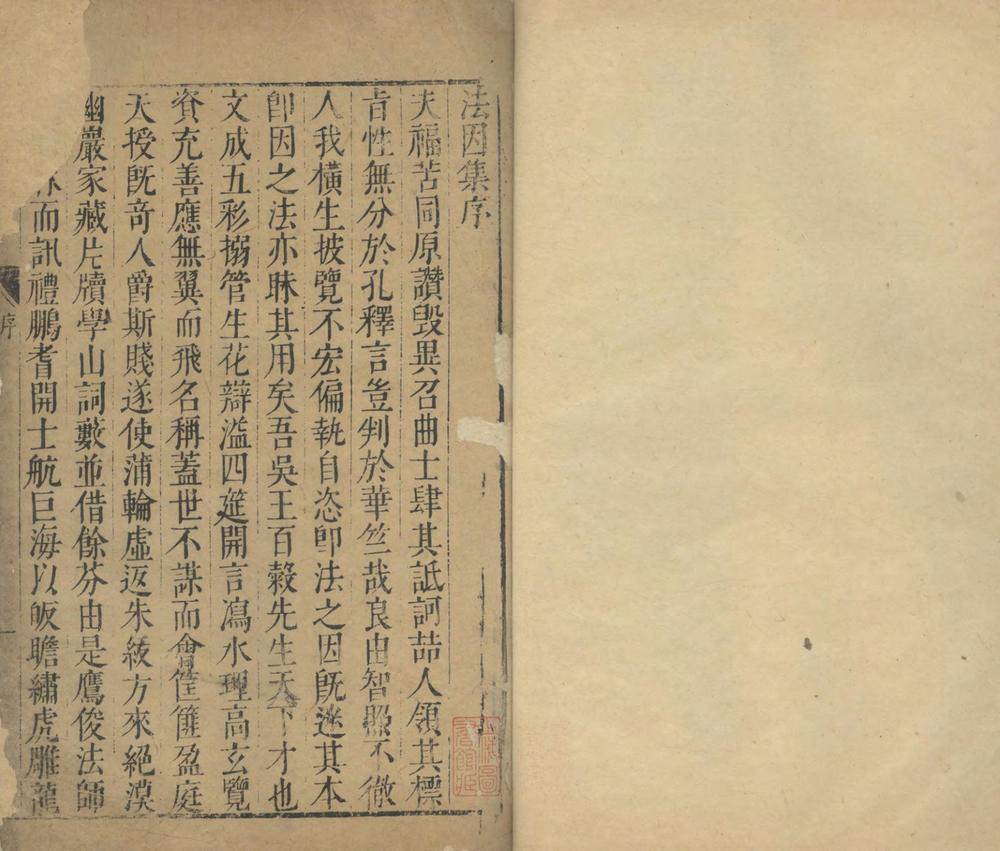 法因集序
夫福苦同原讚毀異召曲士肆其詆訶喆人領其標
旨性無分於孔釋言豈判於華竺哉良由智照不徹
人我橫生披覽不宏偏執自恣卽法之因旣迷其本
卽因之法亦昧其用矣吾吳王百穀先生天下才也
文成五彩搦管生花辯溢四筵開言瀉水理高玄覽
資充善應無翼而飛名稱蓋世不謀而會筐篚盈庭
天授旣奇人爵斯賤遂使蒲輪虛返朱紱方來絕漠
幽巖家藏片牘學山詞藪並借餘芬由是鷹俊法師
而訊禮鵬耆開士航巨海以皈瞻繡虎雕龍
序